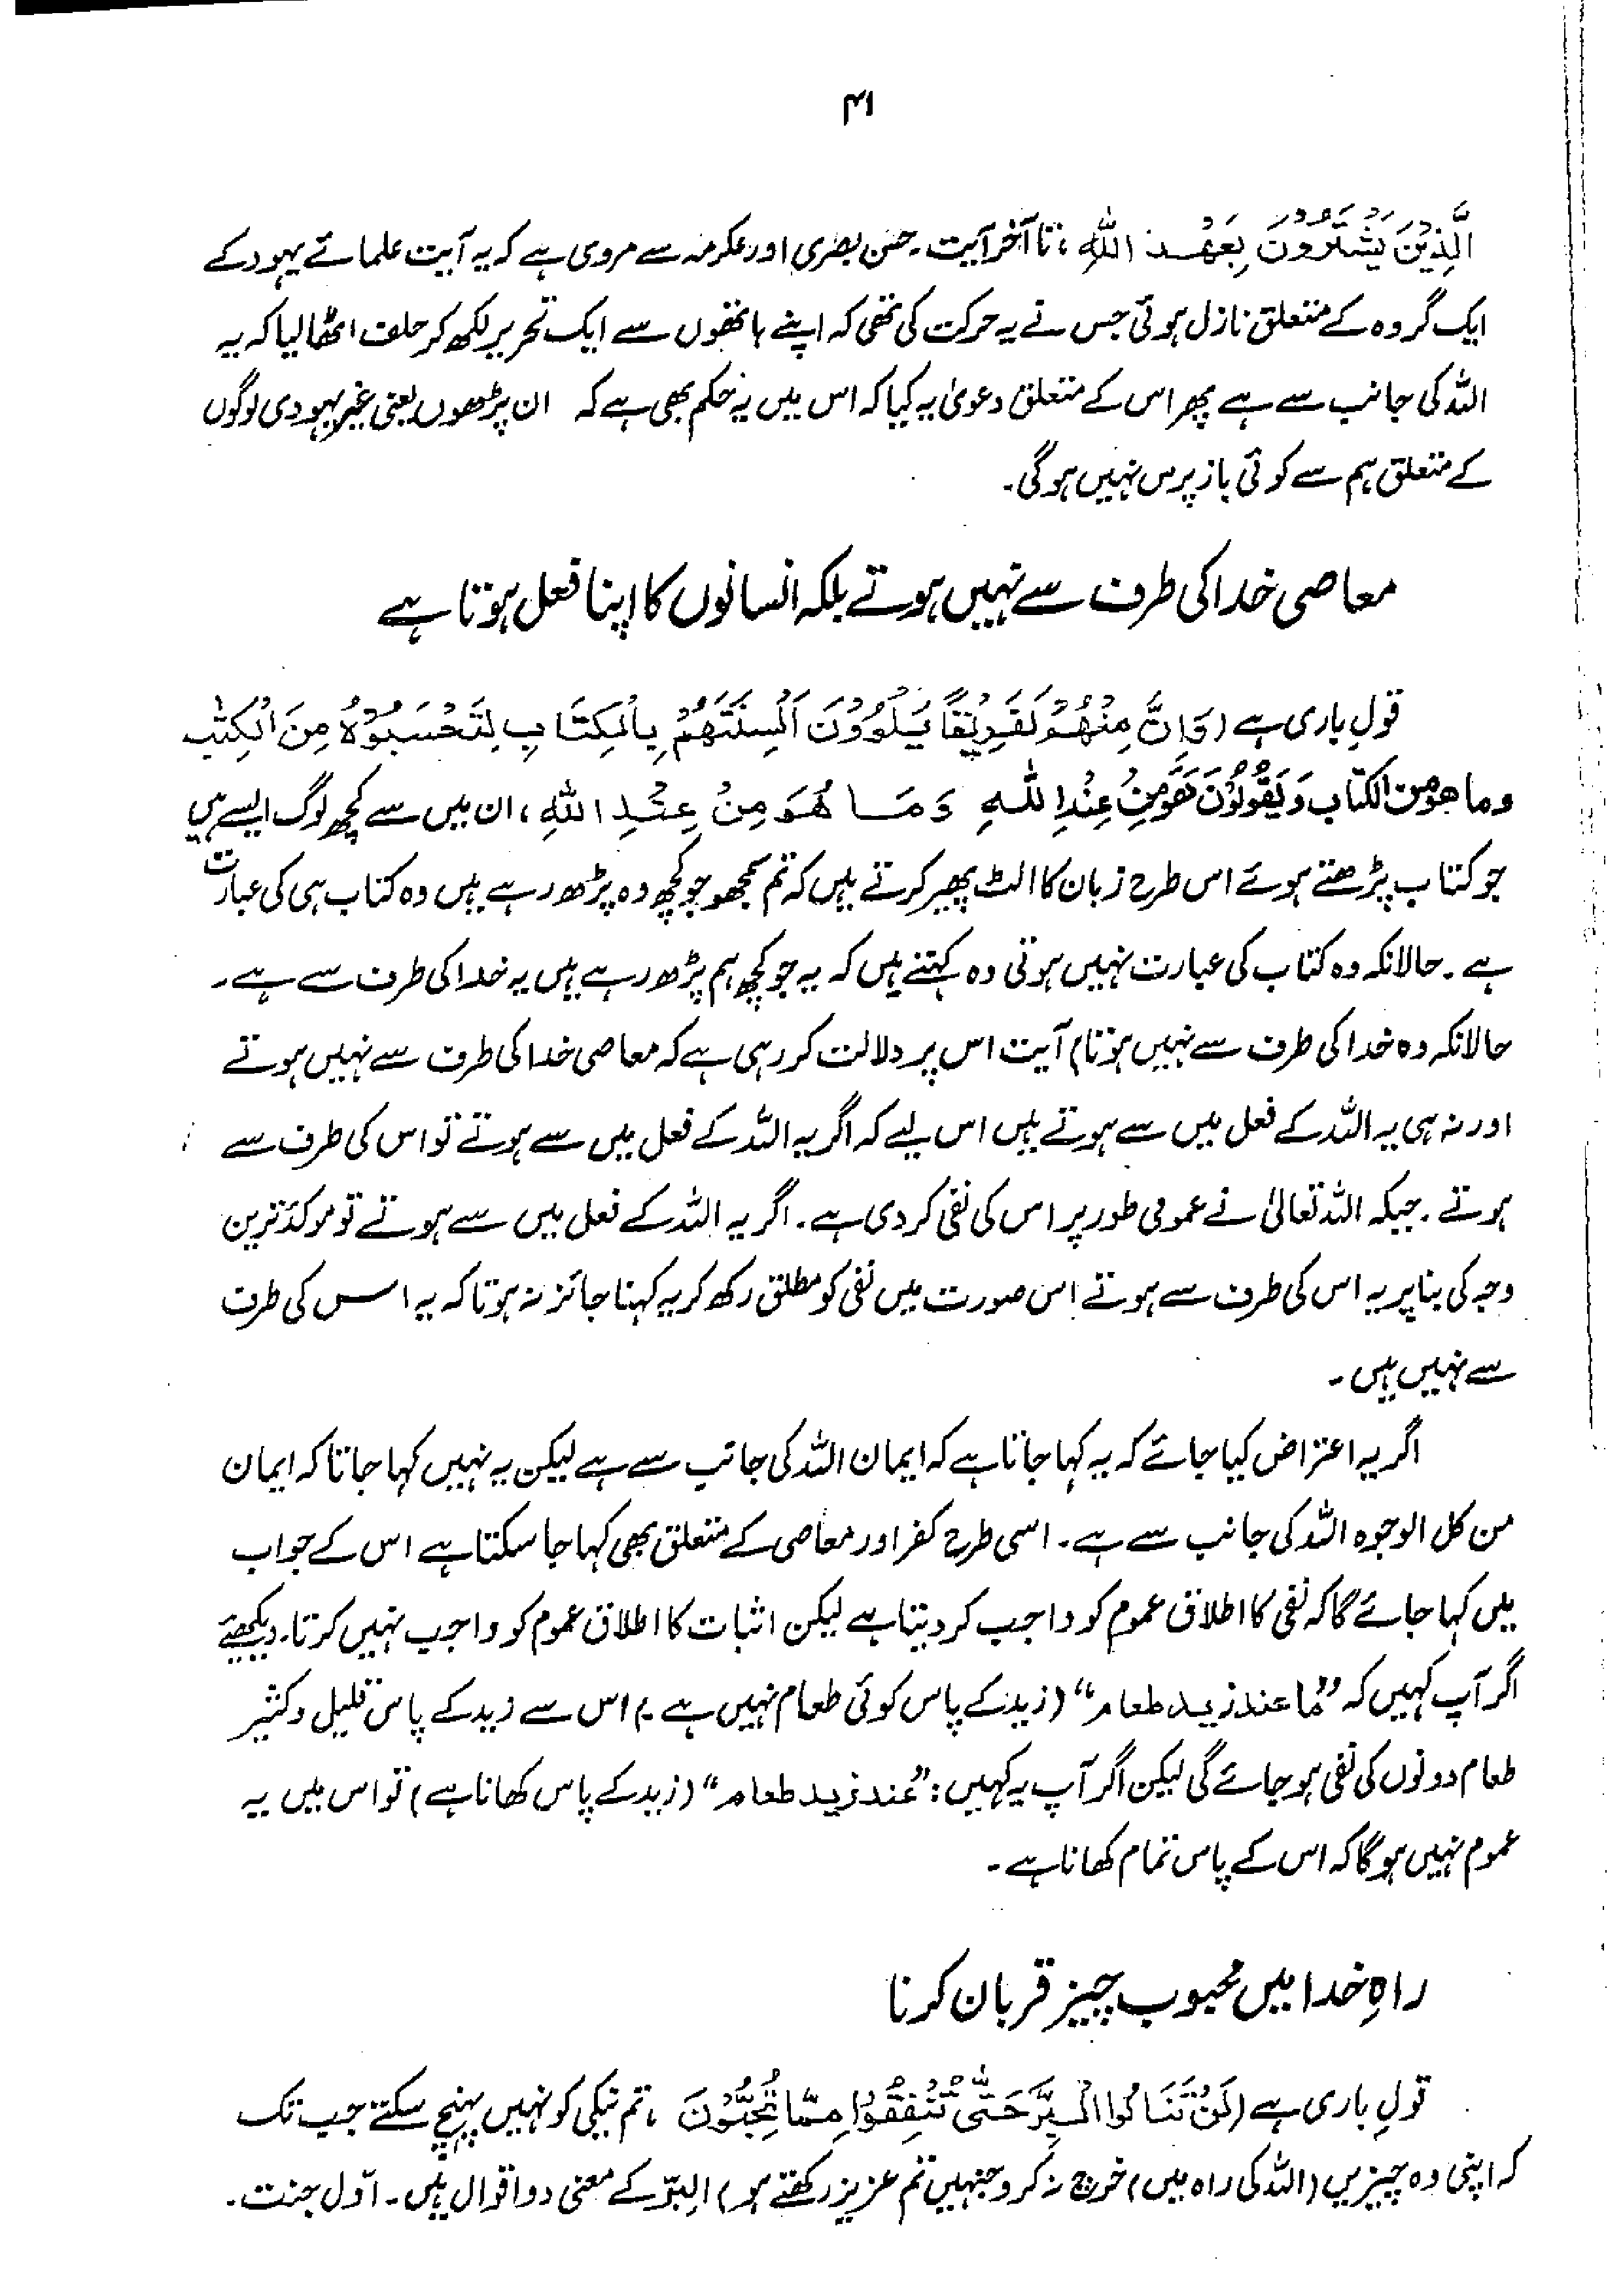 ۴۱
الَّذِیْنَ یَشْتَرُوْنَ بِعَهْدِ اللّٰهِ، تا آخر آیت۔ حسن بصری اور عکرمہ سے مروی ہے کہ یہ آیت علمائے یہود کے
ایک گروہ کے متعلق نازل ہوئی جس نے یہ حرکت کی تھی کہ اپنے ہاتھوں سے ایک تحریر لکھ کر حلف اٹھا لیا کہ یہ
اللہ کی جانب سے ہے پھر اس کے متعلق دعویٰ یہ کیا کہ اس میں یہ حکم بھی ہے کہ ان پڑھوں یعنی غیر یہودی لوگوں
کے متعلق ہم سے کوئی باز پرس نہیں ہوگی۔
معاصی خدا کی طرف سے نہیں ہوتے بلکہ انسانوں کا اپنا فعل ہوتا ہے
قولِ باری ہے (وَاِنَّ مِنْهُمْ لَفَرِیْقًا یَّلْوُوْنَ اَلْسِنَتَهُمْ بِالْكِتَابِ لِتَحْسَبُوْهُ مِنَ الْكِتٰبِ
وما هو من الكتاب وَیَقُوْلُوْنَ هُوَ مِنْ عِنْدِ اللّٰهِ وَمَا هُوَ مِنْ عِنْدِ اللّٰهِ، ان میں سے کچھ لوگ ایسے ہیں
جو کتاب پڑھتے ہوئے اس طرح زبان کا الٹ پھیر کرتے ہیں کہ تم سمجھو جو کچھ وہ پڑھ رہے ہیں وہ کتاب ہی کی عبارت
ہے۔ حالانکہ وہ کتاب کی عبارت نہیں ہوتی وہ کہتے ہیں کہ یہ جو کچھ ہم پڑھ رہے ہیں یہ خدا کی طرف سے ہے۔
حالانکہ وہ خدا کی طرف سے نہیں ہوتا) آیت اس پر دلالت کر رہی ہے کہ معاصی خدا کی طرف سے نہیں ہوتے
اور نہ ہی یہ اللہ کے فعل میں سے ہوتے ہیں اس لیے کہ اگر یہ اللہ کے فعل میں سے ہوتے تو اس کی طرف سے
ہوتے۔ جبکہ اللہ تعالیٰ نے عمومی طور پر اس کی نفی کر دی ہے۔ اگر یہ اللہ کے فعل میں سے ہوتے تو موکد ترین
وجہ کی بنا پر یہ اس کی طرف سے ہوتے اس صورت میں نفی کو مطلق رکھ کر یہ کہنا جائز نہ ہوتا کہ یہ اس کی طرف
سے نہیں ہیں۔
اگر یہ اعتراض کیا جائے کہ یہ کہا جاتا ہے کہ ایمان اللہ کی جانب سے ہے لیکن یہ نہیں کہا جاتا کہ ایمان
من کل الوجوہ اللہ کی جانب سے ہے۔ اسی طرح کفر اور معاصی کے متعلق بھی کہا جا سکتا ہے اس کے جواب
میں کہا جائے گا کہ نفی کا اطلاق عموم کو واجب کر دیتا ہے لیکن اثبات کا اطلاق عموم کو واجب نہیں کرتا۔ دیکھئے
اگر آپ کہیں کہ "ما عند زید طعام" (زید کے پاس کوئی طعام نہیں ہے) اس سے زید کے پاس قلیل و کثیر
طعام دونوں کی نفی ہو جائے گی لیکن اگر آپ یہ کہیں: "عند زید طعام" (زید کے پاس کھانا ہے) تو اس میں یہ
عموم نہیں ہوگا کہ اس کے پاس تمام کھانا ہے۔
راہِ خدا میں محبوب چیز قربان کرنا
قولِ باری ہے (لَنْ تَنَالُوا الْبِرَّ حَتّٰی تُنْفِقُوْا مِمَّا تُحِبُّوْنَ، تم نیکی کو نہیں پہنچ سکتے جب تک
کہ اپنی وہ چیزیں (اللہ کی راہ میں) خرچ نہ کرو جنہیں تم عزیز رکھتے ہو) البِرّ کے معنی دو اقوال ہیں۔ اوّل جنت۔